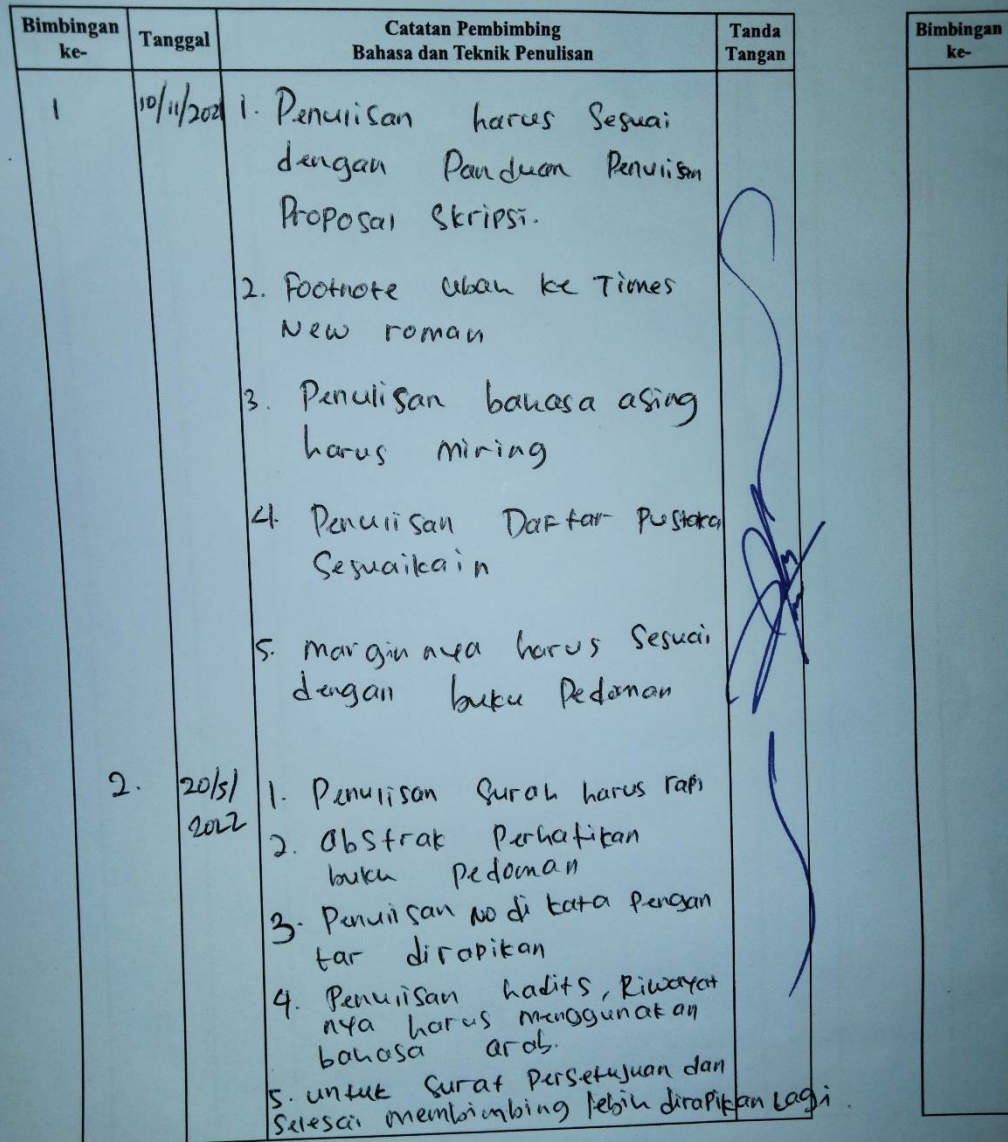 Bimbingan ke-
Tanggal
Catatan Pembimbing
Bahasa dan Teknik Penulisan
Tanda Tangan
Bimbingan ke-
1
10/11/2021
1. Penulisan harus Sesuai
dengan Panduan Penulisan
Proposal Skripsi.
2. Footnote ubah ke Times
New roman
3. Penulisan bahasa asing
harus miring
4. Penulisan Daftar Pustaka
Sesuaikain
5. marginnya harus Sesuai
dengan buku Pedoman
2.
20/5/
2022
1. Penulisan Surah harus rapi
2. abstrak Perhatikan
buku Pedoman
3. Penulisan No di kata Pengan
tar dirapikan
4. Penulisan hadits, Riwayat
nya harus menggunakan
bahasa arab.
5. untuk Surat Persetujuan dan
Selesai membimbing lebih dirapikan Lagi.